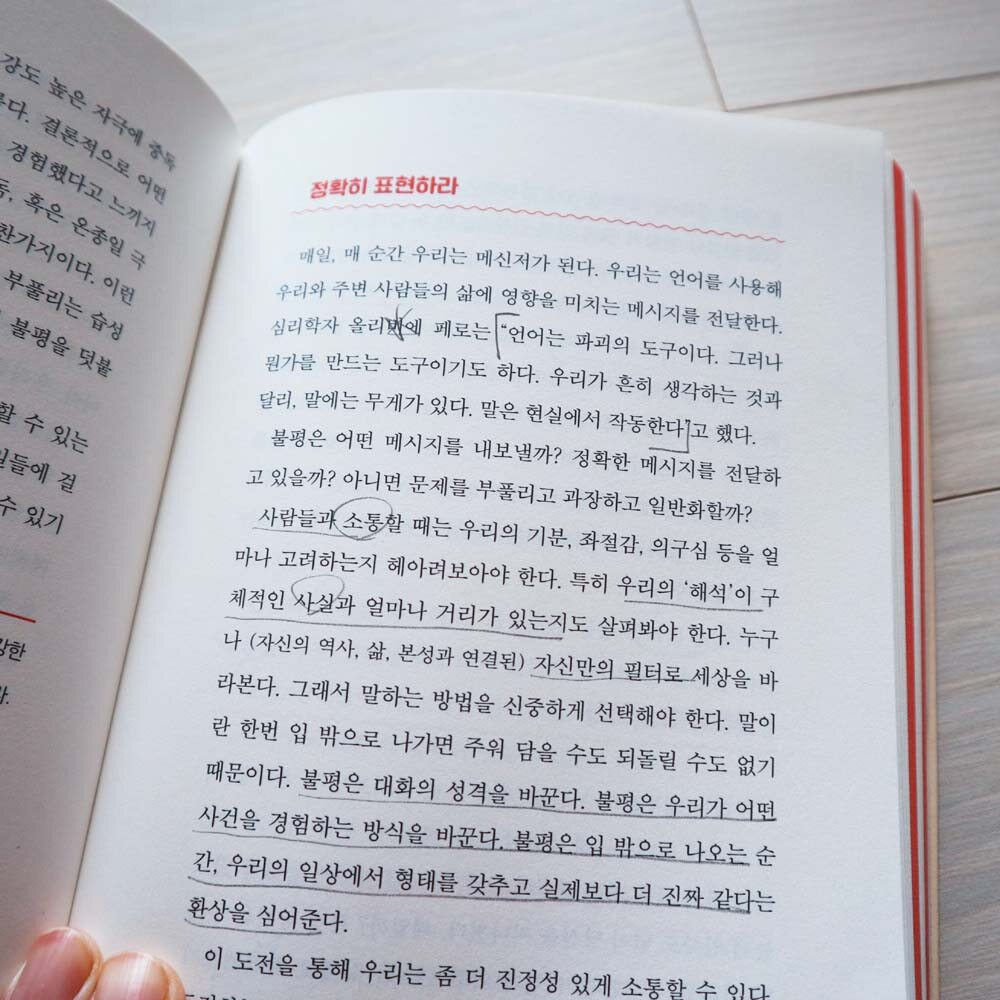 강도 높은 자극에 중독
른다. 결론적으로 어떤
경험했다고 느끼지
혹은 온종일 극
찬가지이다. 이런
부풀리는 습성
불평을 덧붙
할 수 있는
일들에 걸
수 있기
강한
정확히 표현하라
매일, 매 순간 우리는 메신저가 된다. 우리는 언어를 사용해
우리와 주변 사람들의 삶에 영향을 미치는 메시지를 전달한다.
심리학자 페로는 “언어는 파괴의 도구이다. 그러나
뭔가를 만드는 도구이기도 하다. 우리가 흔히 생각하는 것과
달리, 말에는 무게가 있다. 말은 현실에서 작동한다”고 했다.
불평은 어떤 메시지를 내보낼까? 정확한 메시지를 전달하
고 있을까? 아니면 문제를 부풀리고 과장하고 일반화할까?
사람들과 소통할 때는 우리의 기분, 좌절감, 의구심 등을 얼
마나 고려하는지 헤아려보아야 한다. 특히 우리의 ‘해석’이 구
체적인 사실과 얼마나 거리가 있는지도 살펴봐야 한다. 누구
나 (자신의 역사, 삶, 본성과 연결된) 자신만의 필터로 세상을 바
라본다. 그래서 말하는 방법을 신중하게 선택해야 한다. 말이
란 한번 입 밖으로 나가면 주워 담을 수도 되돌릴 수도 없기
때문이다. 불평은 대화의 성격을 바꾼다. 불평은 우리가 어떤
사건을 경험하는 방식을 바꾼다. 불평은 입 밖으로 나오는 순
간, 우리의 일상에서 형태를 갖추고 실제보다 더 진짜 같다는
환상을 심어준다.
이 도전을 통해 우리는 좀 더 진정성 있게 소통할 수 있다.